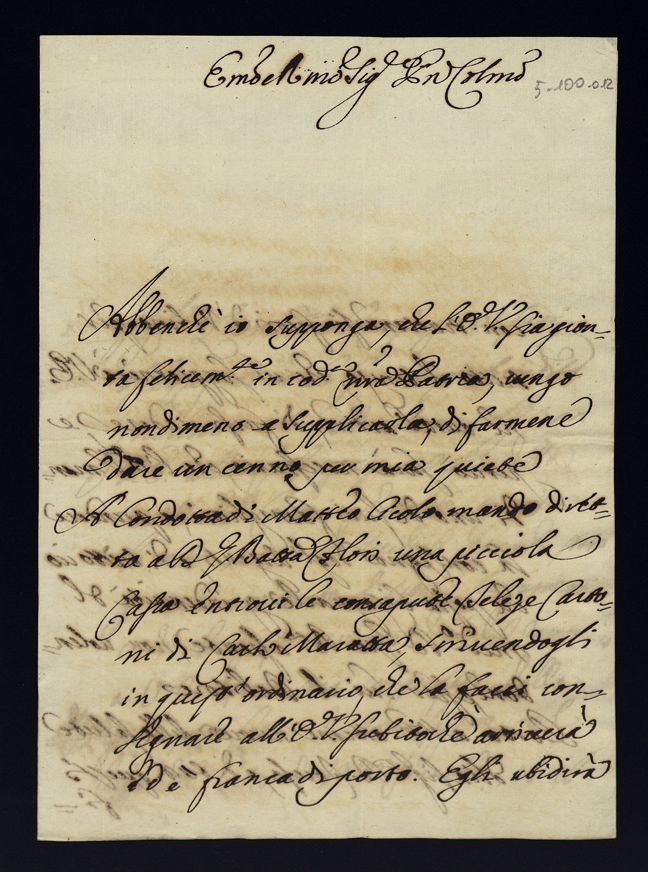 5-100-012
Abbenche io supponga, che l'E. V. sia gion-
ta felicem.te in cod. Patria, vengo
nondimeno a supplicarla, di farmene
dare un cenno per mia quiete
A Condotta di Matteo mando diret-
ta al una picciola
Cassa entrovi le consapute Carto-
ni di Carlo Maratta, scrivendogli
in quest'ordinario, che la facci con-
segnare all'E. V. subito che arriverà
ed e franca di porto. Egli ubidirà